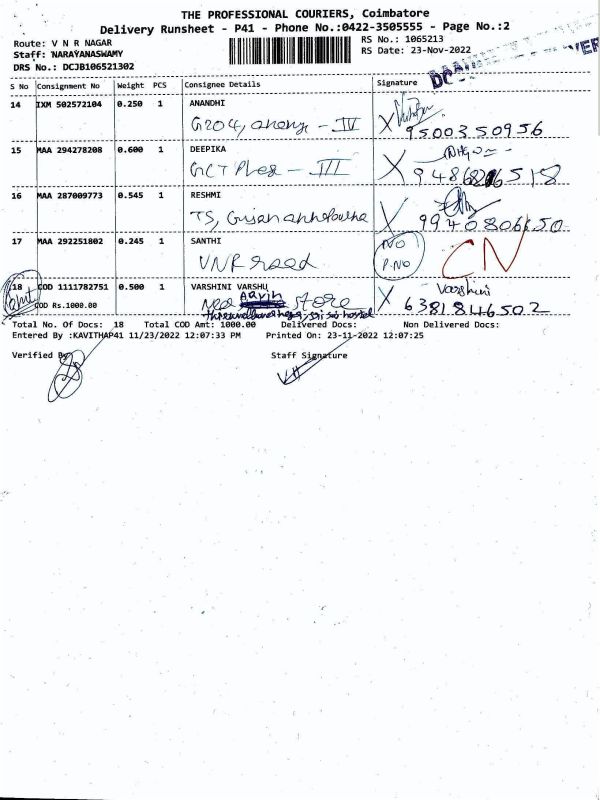 THE PROFESSIONAL COURIERS, Coimbatore
Delivery Runsheet - P41 - Phone No.:0422-3505555 - Page No.:2
Route: V N R NAGAR
Staff: NARAYANASWAMY
DRS No.: DCJB106521302
RS No.: 1065213
RS Date: 23-Nov-2022
S No Consignment No Weight PCS Consignee Details Signature
14 IXM 502572104 0.250 1 ANANDHI
G204, - IV X 9500350956
15 MAA 294278208 0.600 1 DEEPIKA
GCT - III X
16 MAA 287009773 0.545 1 RESHMI
TS, X
17 MAA 292251802 0.245 1 SANTHI NO
VNR road P.NO CN
18 COD 1111782751 0.500 1 VARSHINI VARSHU Varshini
COD Rs.1000.00 Near Aavin store X 6381846502
hostel
Total No. Of Docs: 18 Total COD Amt: 1000.00 Delivered Docs: Non Delivered Docs:
Entered By :KAVITHAP41 11/23/2022 12:07:33 PM Printed On: 23-11-2022 12:07:25
Verified By Staff Signature